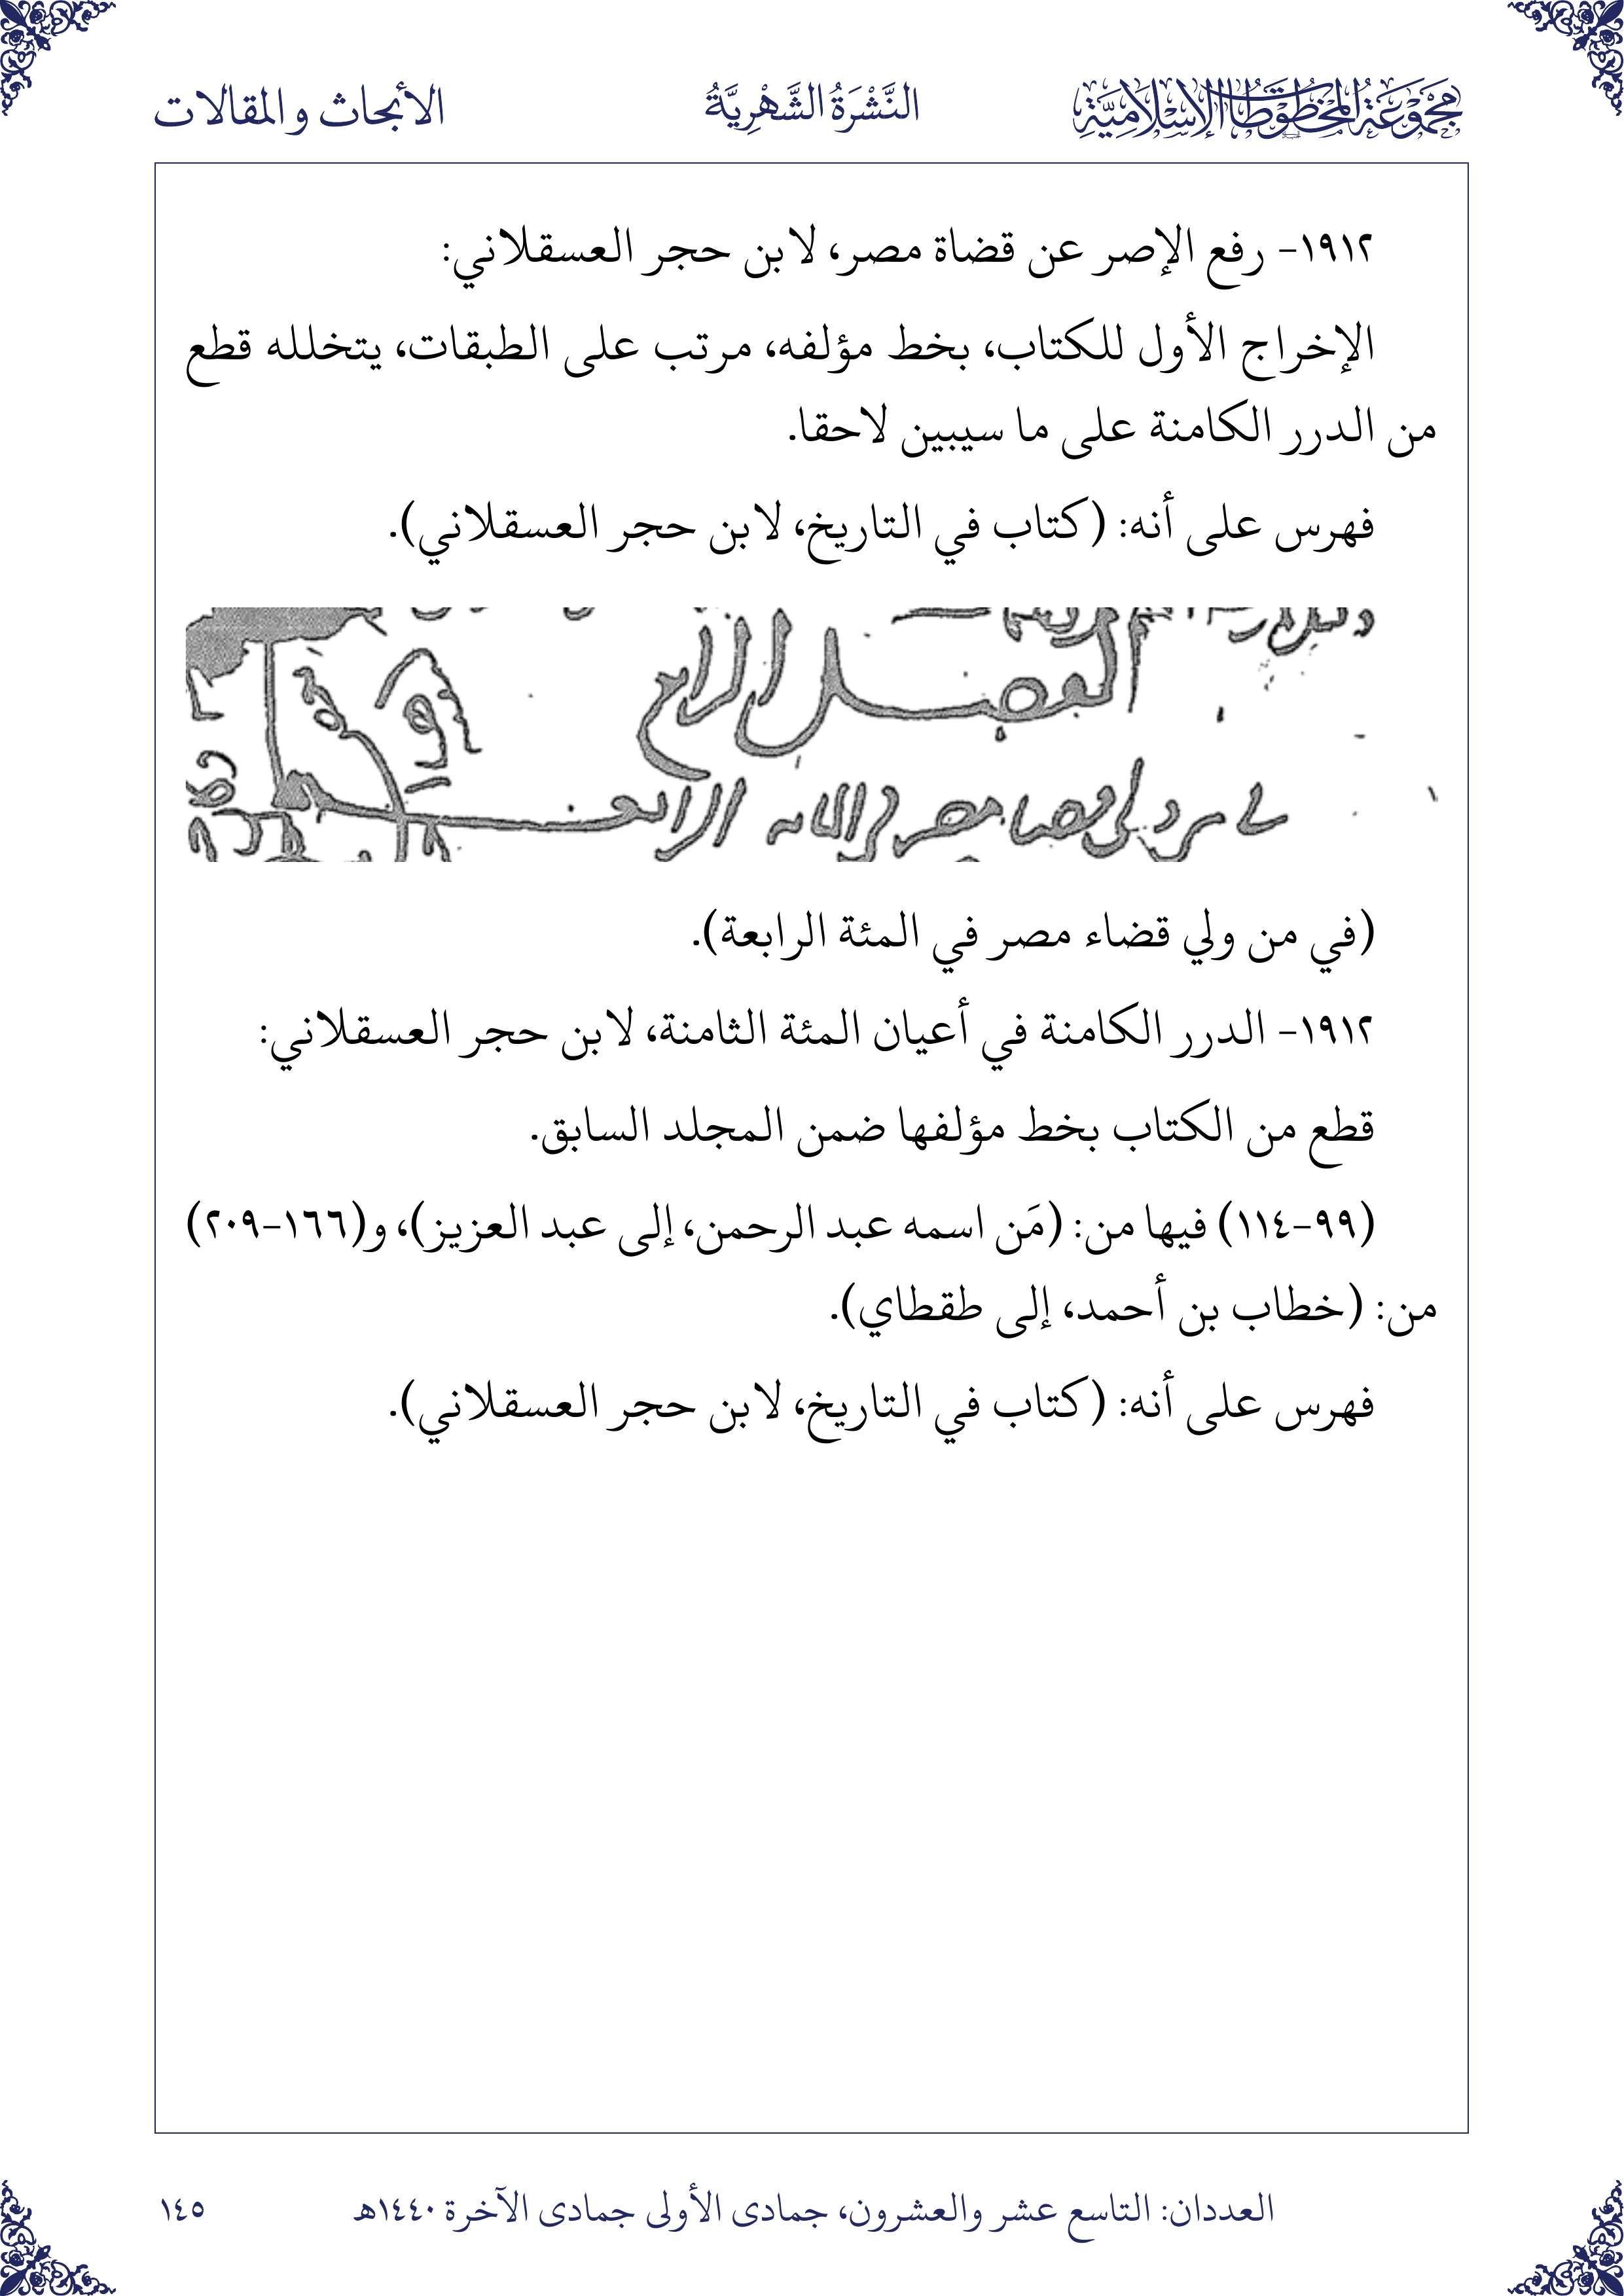 مَجْمُوعَةُ المَخْطُوطَاتِ الإِسْلَامِيَّةِ
النَّشْرَةُ الشَّهْرِيَّةُ
الأبحاث والمقالات
١٩١٢- رفع الإصر عن قضاة مصر، لابن حجر العسقلاني:
الإخراج الأول للكتاب، بخط مؤلفه، مرتب على الطبقات، يتخلله قطع
من الدرر الكامنة على ما سيبين لاحقا.
فهرس على أنه: (كتاب في التاريخ، لابن حجر العسقلاني).
(في من ولي قضاء مصر في المئة الرابعة).
١٩١٢- الدرر الكامنة في أعيان المئة الثامنة، لابن حجر العسقلاني:
قطع من الكتاب بخط مؤلفها ضمن المجلد السابق.
(٩٩-١١٤) فيها من: (مَن اسمه عبد الرحمن، إلى عبد العزيز)، و(١٦٦-٢٠٩)
من: (خطاب بن أحمد، إلى طقطاي).
فهرس على أنه: (كتاب في التاريخ، لابن حجر العسقلاني).
العددان: التاسع عشر والعشرون، جمادى الأولى جمادى الآخرة ١٤٤٠هـ
١٤٥